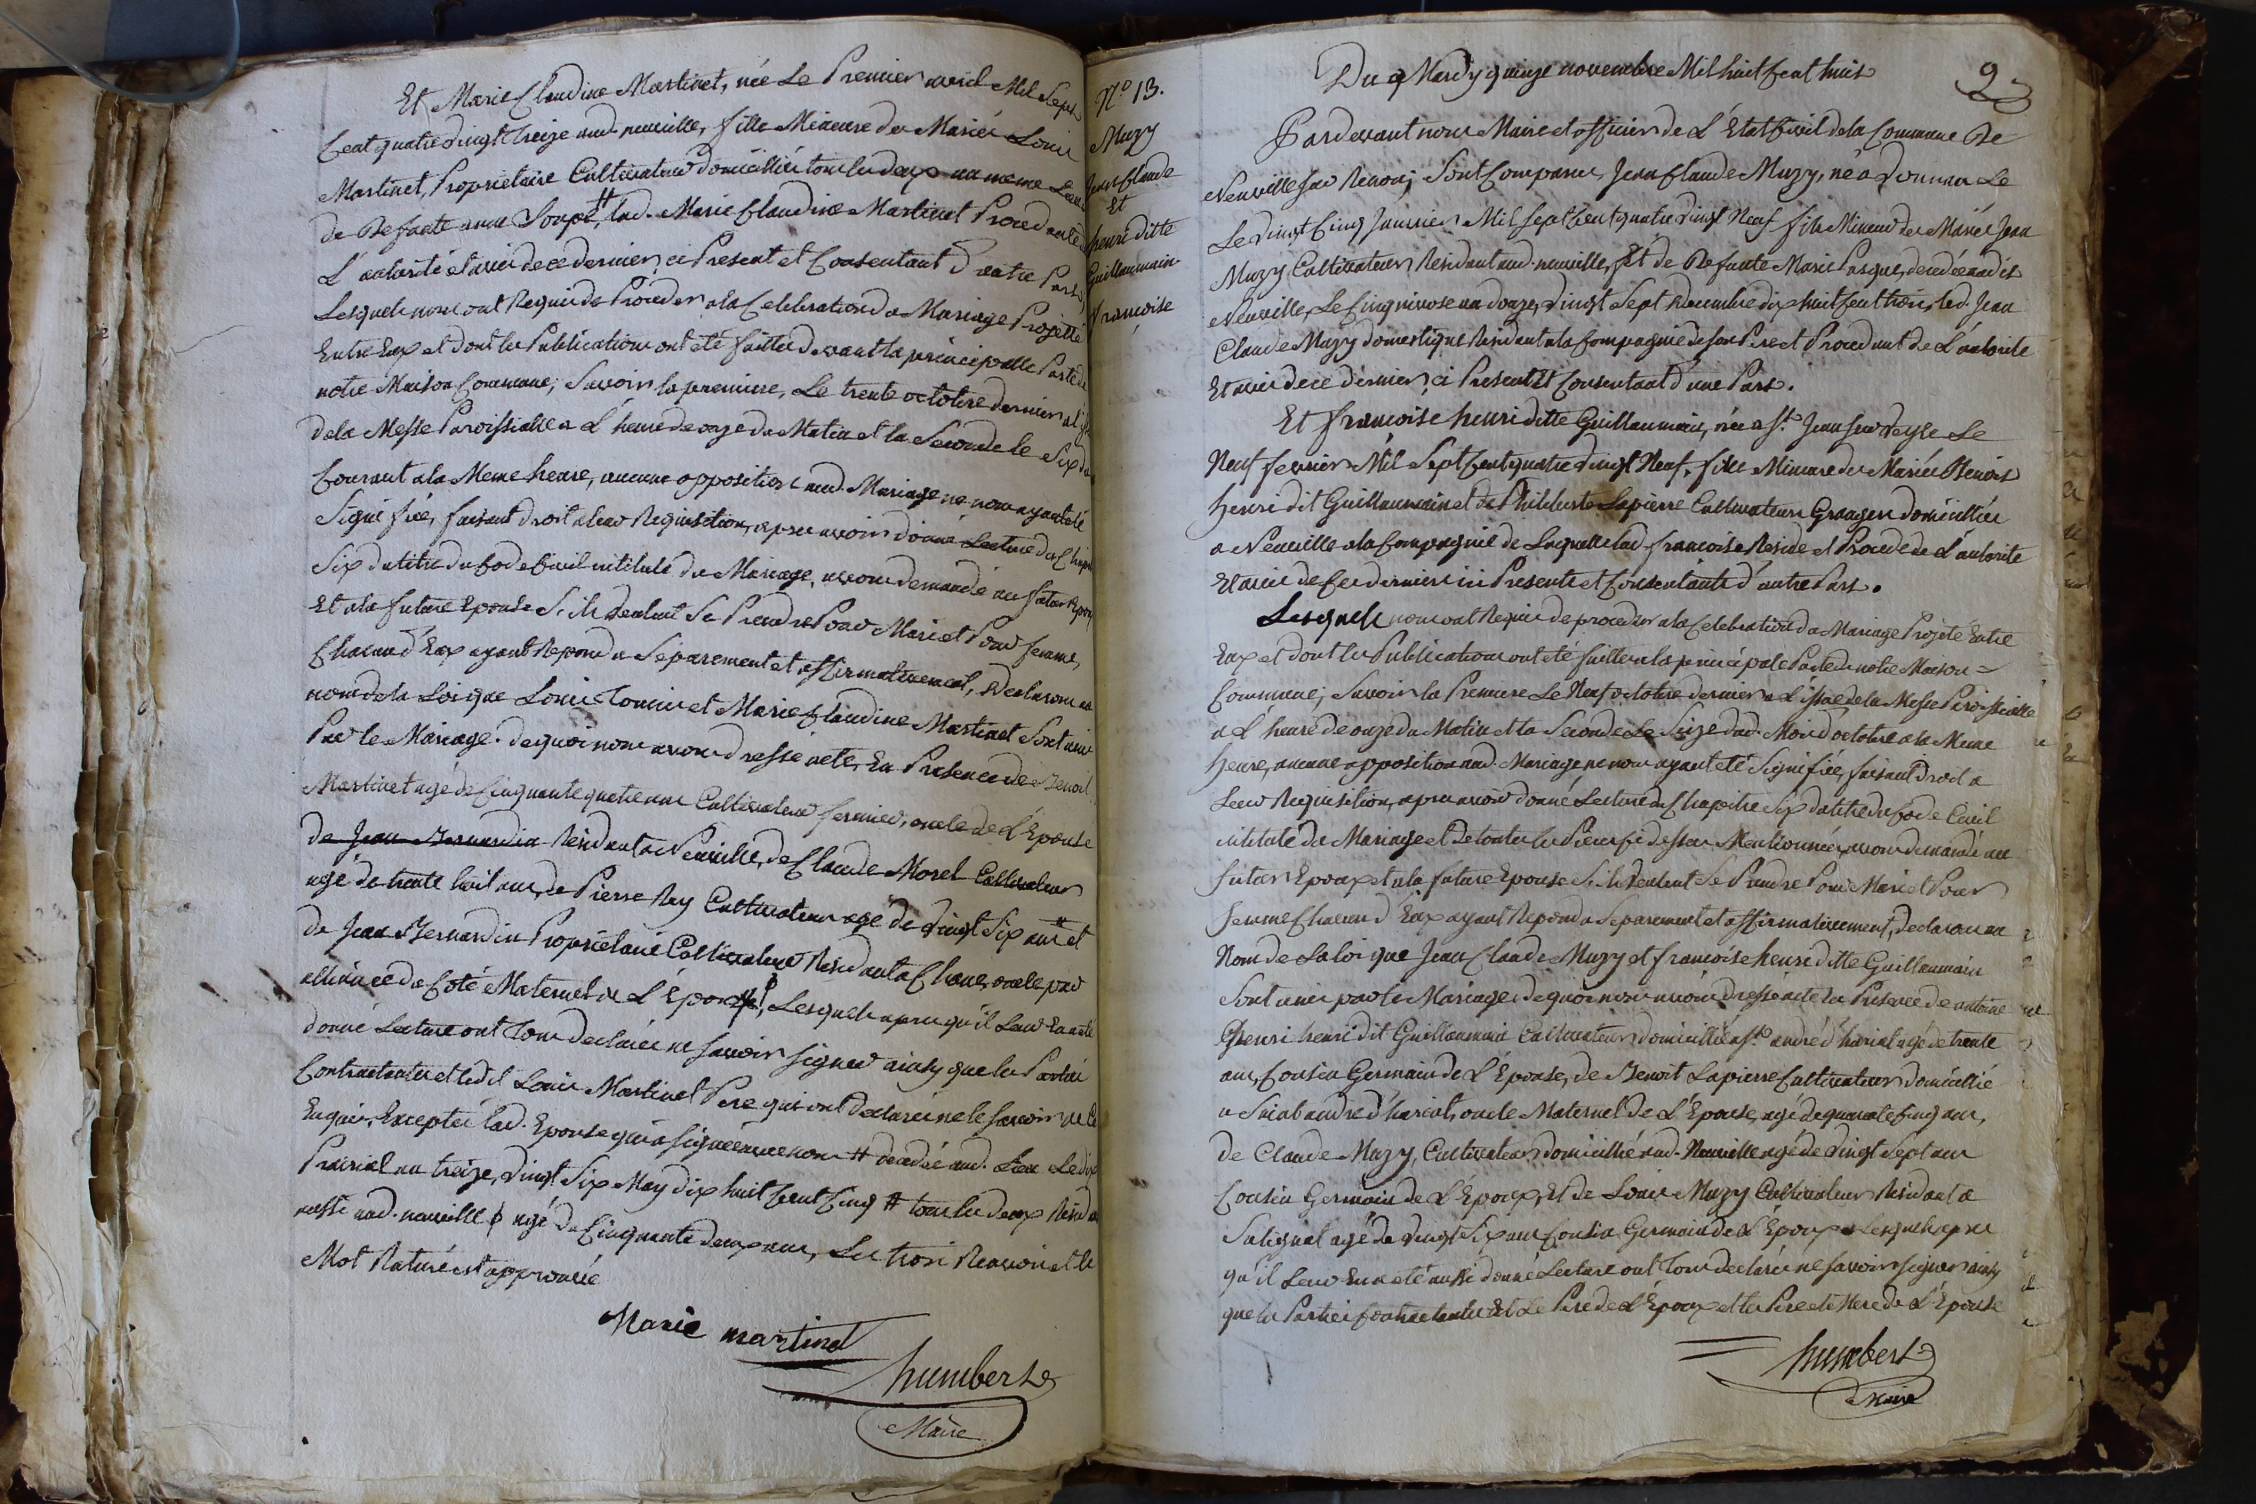 Et Marie Claudine Martinet, née Le Premier avril Mil Sept
Cent quatre vingt treize aud. neuville, fille Mineure de Mariée Louis
Martinet, Proprietaire Cultivateur domicilliés tous les deux au meme Lieu
de Defunte anne Soupe # lad. Marie Claudine Martinet Procedante de
L'autorité et avis de ce dernier ci Present et Consentant d'autre Part,
Lesquels nous ont Requis de Proceder a la Celebration du Mariage Projetté
Entre Eux et dont les Publications ont été faittes devant la principalle Porte de
notre Maison Commune; Savoir la premiere, Le trente octobre dernier a l'issue
de la Messe Paroissialle a L'heure de onze du Matin et la Seconde le Six du
Courant a la Meme heure, aucune opposition aud. Mariage ne nous ayant été
Signifiée, faisant droit a Leur Requisition, apres avoir donné Lecture du Chapitre
Six du titre du Code Civil intitulé du Mariage, avons demandé au futur Epoux
Et a la future Epouse S'ils veulent Se Prendre Pour Mari et Pour femme,
Chacun d'Eux ayant Repondu Séparement et affirmativement, declarons au
nom de la Loi que Louis Tonin et Marie Claudine Martinet Sont unis
Par le Mariage. de quoi nous avons dressé acte, En Presence de Benoit
Martinet agé de Cinquante quatre ans Cultivateur fermier, oncle de L'Epouse
de Jean Bernardin Residant a Neuville, de Claude Morel Cultivateur
agé de trente huit ans, de Pierre Rey Cultivateur agé de vingt Six ans # et
de Jean Bernardin Proprietaire Cultivateur Residant a Chane, oncle par
alliance du Coté Maternel de L'Epouse, Lesquels apres qu'il Leur En a été
donné Lecture ont tous declarés ne savoir signer ainsy que les Parties
Contractantes et led. Louis Martinet Pere qui ont declarés ne le savoir de Ce
Enquis, Exceptés lad. Epouse qui a signée avec nous # decedée aud. Lieu Le dix
Prairial an treize, vingt Six May dix huit Cent Cinq # tous les deux Resid
aussi aud. neuville ϕ agé de Cinquante deux ans, Les trois Renvois et le
Mot Raturé est approuvé
Marie martinet
humbert
Maire
N.º 13.
Muzy
Jean Claude
Et
henri ditte
Guillaumain
françoise
Du Mardy quinze novembre Mil huit Cent huit
9
Pardevant nous Maire et officier de L'État Civil de la Commune De
Neuville sur Renon; Sont Comparus Jean Claude Muzy, né a Vonnas Le
Le vingt Cinq Janvier Mil Sept Cent quatre vingt Neuf fils Mineur de Mariés Jean
Muzy Cultivateur Residant aud. neuville, Et de Defunte Marie Pasque, decedée aud.
Neuville, Le Cinq nivose an douze, vingt Sept decembre dix huit Cent trois, led. Jean
Claude Muzy domestique Residant a la Compagnie de son Pere et Procedant de L'autorité
Et avis de ce dernier, ci Present Et Consentant d'une Part.
Et françoise henri ditte Guillaumain, née a S.t Jean sur Veyle Le
Neuf fevrier Mil Sept Cent quatre vingt Neuf, fille Mineure de Mariés Benoit
henri dit Guillaumain et de Philiberte Lapierre Cultivateurs Grangers domicilliés
a Neuville a la Compagnie de Laquelle lad. françoise Reside et Procede de L'autorité
Et avis de Ces derniers ici Presents et Consentants d'autre Part.
Lesquels nous ont Requis de proceder a la Celebration du Mariage Projeté Entre
Eux et dont les Publications ont été faittes a la principale Porte de notre Maison =
Commune; Savoir la Premiere Le Neuf octobre dernier a L'issue de la Messe Paroissialle
a L'heure de onze du Matin Et la Seconde Le Seize dud. Mois d'octobre a la Meme
heure, aucune opposition aud. Mariage ne nous ayant été Signifiée, faisant droit a
Leur Requisition, apres avoir donné Lecture du Chapitre Six du titre du Code Civil
intitulé du Mariage et De toutes les Pieces Ci dessus Mentionnées, avons demandé au
futur Epoux et a la future Epouse S'ils veulent Se Prendre Pour Mari et Pour
femme Chacun d'Eux ayant Repondu Separement et affirmativement, declarons au
Nom de La loi que Jean Claude Muzy et françoise henri ditte Guillaumain
Sont unis par le Mariage, de quoi nous avons dressé acte En Presence de antoine
henri dit Guillaumain Cultivateur domicillié a S.t andré d'huriat agé de trente
ans, Cousin Germain de L'Epouse, de Benoit Lapierre Cultivateur domicillié
a Saint andré d'huriat, oncle Maternel de L'Epouse, agé de quarante Cinq ans,
de Claude Muzy, Cultivateur domicillié aud. Neuville agé de vingt Sept ans
Cousin Germain de L'Epoux, Et de Louis Muzy Cultivateur Residant a
Sulignat agé de vingt Six ans Cousin Germain de L'Epoux Lesquels apres
qu'il Leur En a été aussi donné Lecture ont tous declarés ne savoir signer ainsy
que les Parties Contractantes Et Le Pere de L'Epoux et les Pere et Mere de L'Epouse
humbert
Maire